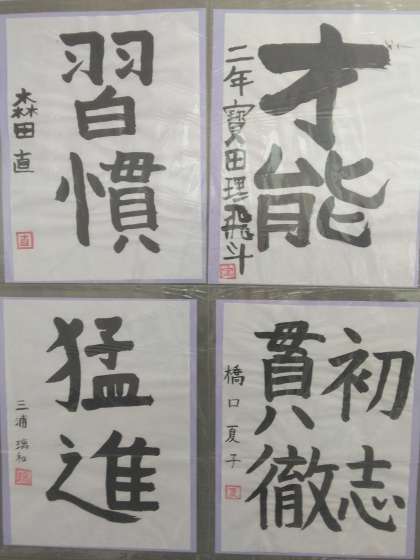 習慣
森田 直
才能
二年 寶田琪飛斗
猛進
三浦 瑞和
初志
貫徹
橋口 夏子